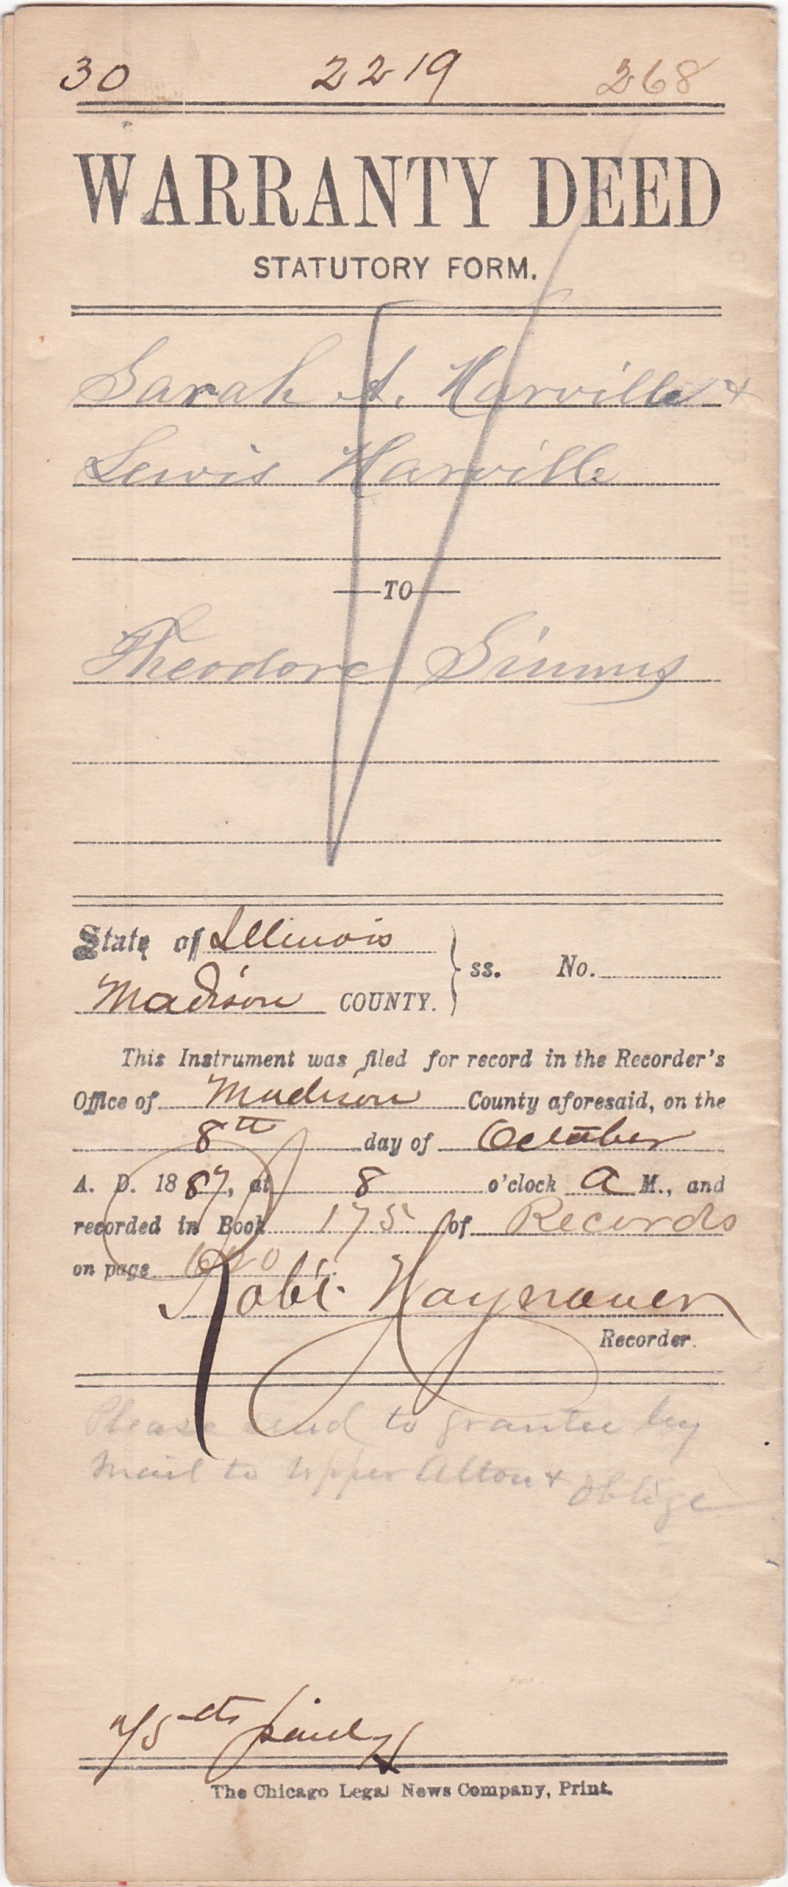 30 2219 268
WARRANTY DEED
STATUTORY FORM.
Sarah A. Harville &
Lewis Harville
TO
Theodore Simms
State of Illinois
Madison COUNTY. } ss. No.
This Instrument was filed for record in the Recorder's
Office of Madison County aforesaid, on the
8th day of October
A. D. 1887, at 8 o'clock A M., and
recorded in Book 175 of Records
on page
Robt. Hagnauer
Recorder.
Please send to grantee by
Mail to Upper Alton & oblige
75 cts paid
The Chicago Legal News Company, Print.